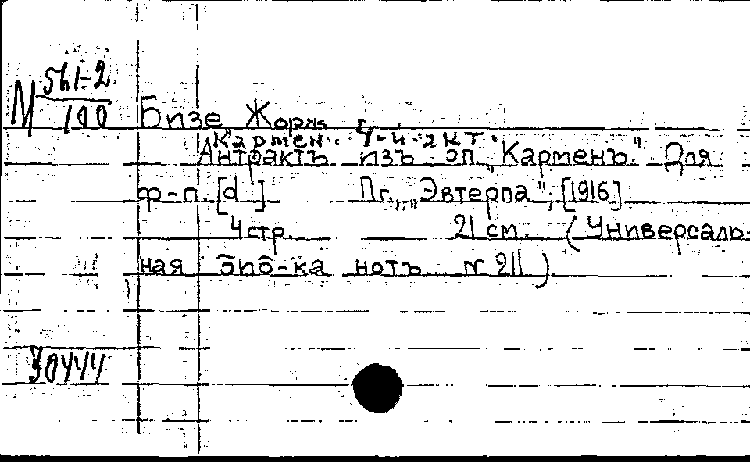 М 561-2
100
Бизе Жорж
Кармен. 4-й акт.
Антрактъ изъ оп. "Карменъ." Для
ф-п. [d ]. Пг., "Эвтерпа", [1916].
4 стр. 21 см. (Универсаль-
ная биб-ка нотъ N 211)
30444